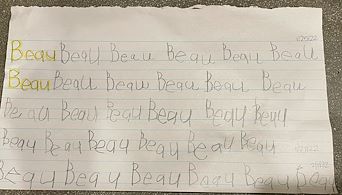 Beau Beau Beau Beau Beau Beau
Beau Beau Beau Beau Beau Beau
Beau Beau Beau Beau Beau Beau
Beau Beau Beau Beau Beau Beau
Beau Beau Beau Beau Beau Beau